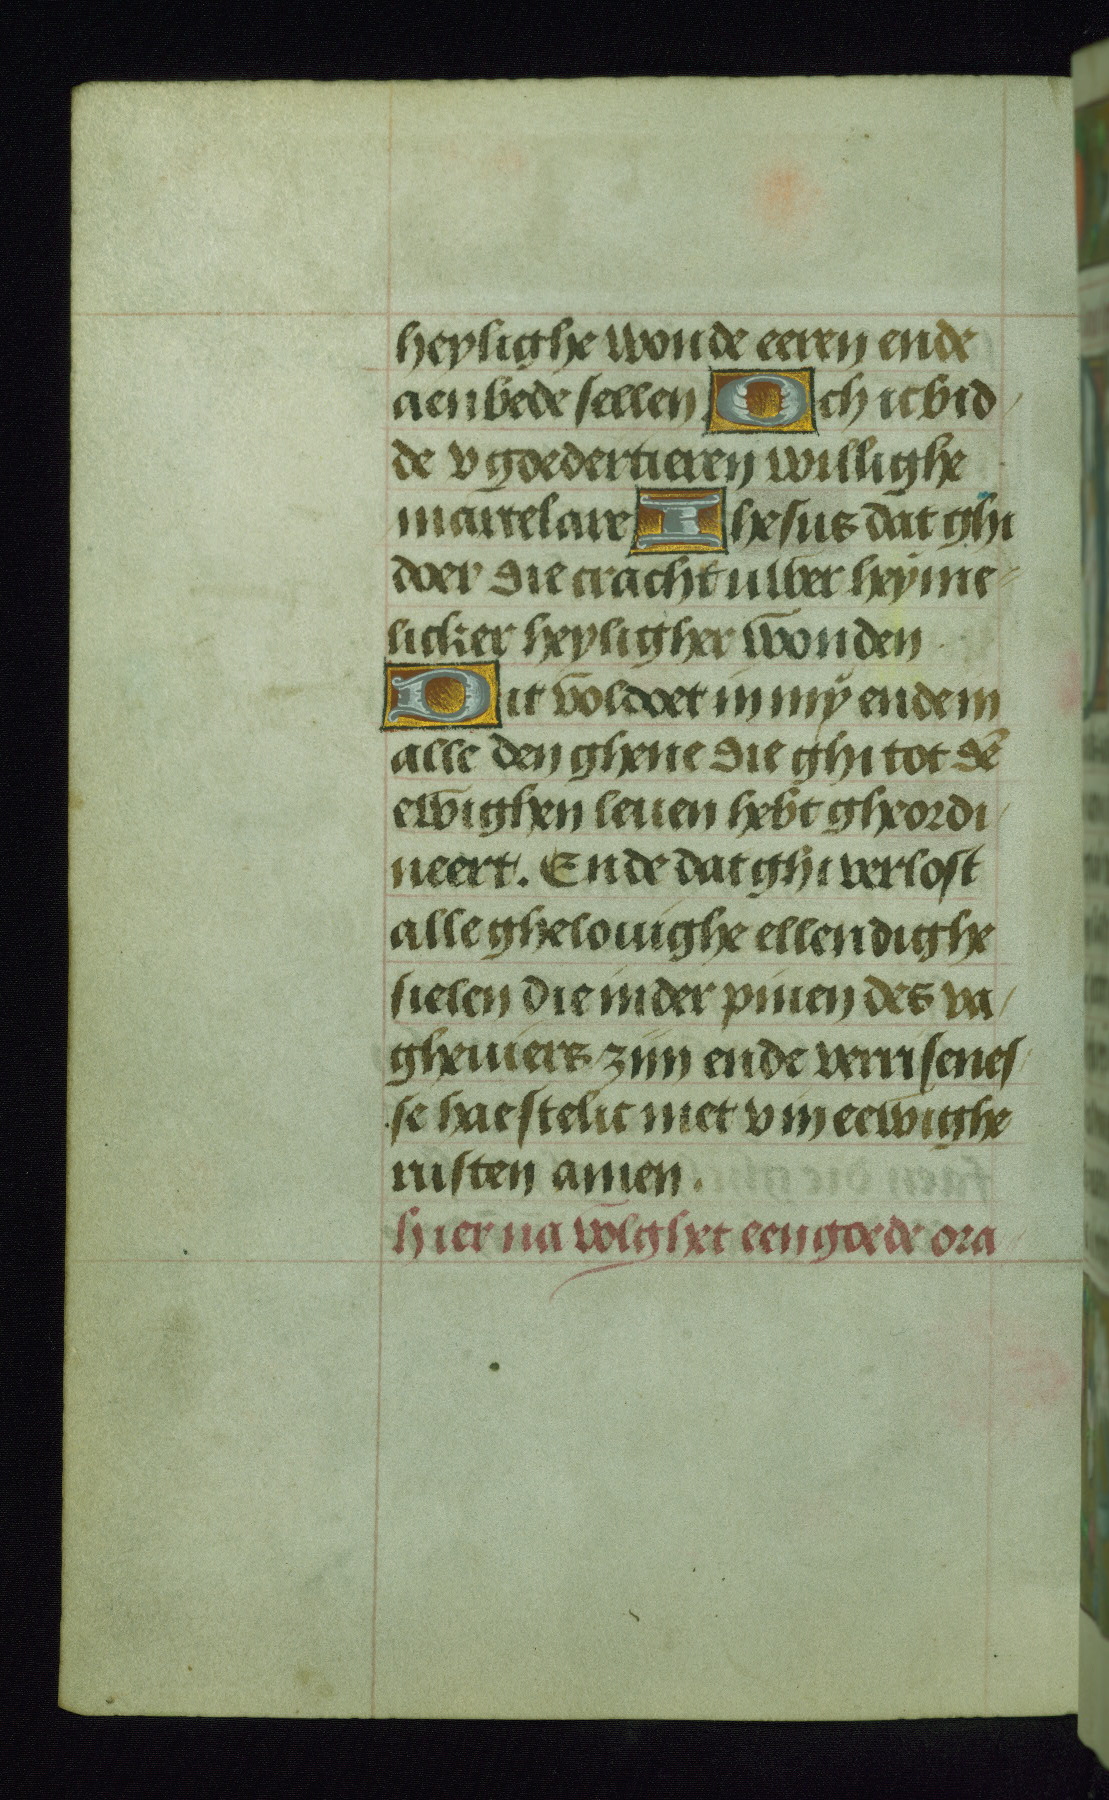 heylighe wonde eeren ende
aenbede sellen Och ic bid
de v goedertieren willighe
martelare Ihesus dat ghi
doer die cracht uwer heyme
licker heyligher wonden
Dit voldoet in my ende in
alle den ghene die ghi tot dē
ewighen leuen hebt gheordi
neert. Ende dat ghi verlost
alle ghelouighe ellendighe
sielen die in der pinen des va
gheuiers zijn ende verrisenes
se haestelic met v in eewighe
rusten amen.
hier na volghet een goede ora